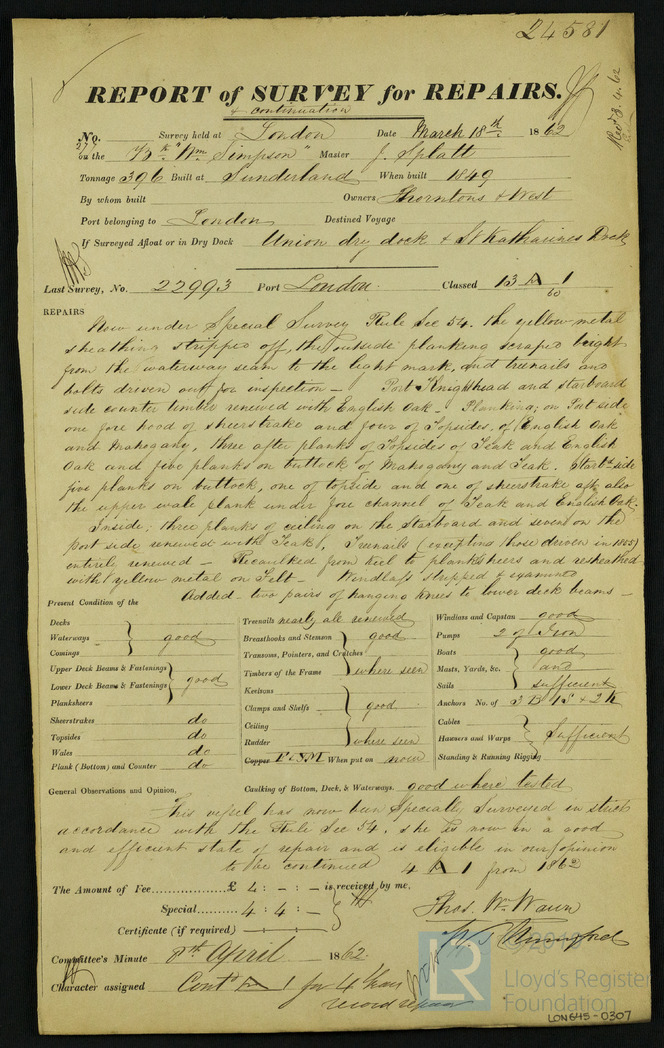 24581
REPORT of SURVEY for REPAIRS.
& continuation
Rec'd 3.4.62
No. Survey held at London Date March 18th 1862
on the Bk "Wm Simpson" Master J. Splatt
Tonnage 396 Built at Sunderland When built 1849
By whom built Owners Thorntons & West
Port belonging to London Destined Voyage
If Surveyed Afloat or in Dry Dock Union dry dock & St Katharines Dock
Last Survey, No. 22993 Port London Classed 13 A 1
60
REPAIRS
Now under Special Survey Rule Sec 54. the yellow metal
sheathing stripped off, the outside planking scraped bright
from the waterway seam to the light mark, and treenails and
bolts driven out for inspection — Port Knighthead and starboard
side counter timber renewed with English Oak — Planking; on Port side
one fore hood of sheerstrake and four of Topsides of English Oak
and Mahogany, three after planks of Topsides of Teak and English
Oak and five planks on buttock of Mahogany and Teak. Starbd side
five planks on buttock, one of topside and one of sheerstrake aft, also
the upper wale plank under fore channel of Teak and English Oak.
Inside; three planks of ceiling on the Starboard and seven on the
port side renewed with Teak, Treenails (excepting those driven in 1855)
entirely renewed — Recaulked from keel to plansheers and resheathed
with yellow metal on Felt — Windlass stripped & examined
Added — two pairs of hanging knees to lower deck beams —
Present Condition of the
Decks
Waterways good
Comings
Upper Deck Beams & Fastenings
Lower Deck Beams & Fastenings good
Planksheers
Sheerstrakes do
Topsides do
Wales do
Plank (Bottom) and Counter do
Treenails nearly all renewed
Breasthooks and Stemson good
Transoms, Pointers, and Crutches
Timbers of the Frame where seen
Keelsons
Clamps and Shelfs good
Ceiling
Rudder where seen
Copper F & YM When put on now
Windlass and Capstan good
Pumps 2 of Iron
Boats good
Masts, Yards, &c. and
Sails sufficient
Anchors No. of 3 B 1 S & 2 K
Cables
Hawsers and Warps Sufficient
Standing & Running Rigging
General Observations and Opinion, Caulking of Bottom, Deck, & Waterways. good where tested
This vessel has now been Specially Surveyed in strict
accordance with the Rule Sec 54. she is now in a good
and efficient state of repair and is eligible in our opinion
to be continued 4 A 1 from 1862
The Amount of Fee £ 4 : - : - is received by me,
Special 4 : 4 : -
Certificate (if required)
Thos. Wm Wawn
Committee's Minute 8th April 1862
Character assigned Contd A 1 for 4 Years
record repair
Lloyd's Register
Foundation
LON645-0307